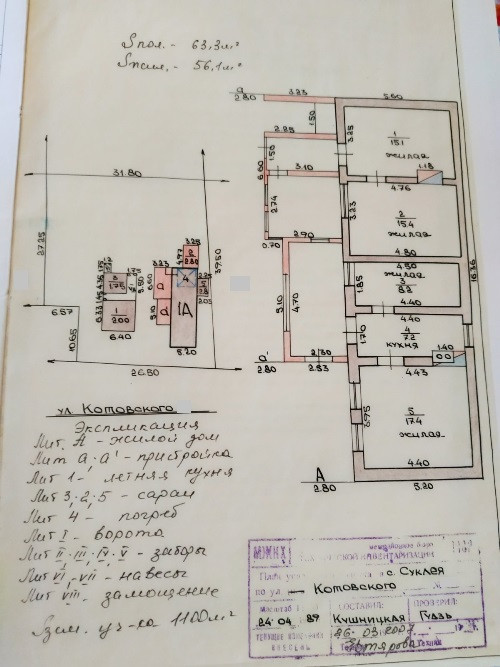 Sпол. - 63,3м²
Sжил. - 56,1м²
а
2.80
3.23
5.60
1.50
3.25
1
15.1
жилая
1.18
4.76
2.25
1.50
6.60
3.10
2.74
3.23
2
15.4
жилая
4.80
0.70
2.90
4.50
жилая
3
8.3
1.85
4.40
16.36
4.70
4.40
4
7.2
кухня
1.70
1.40
4.43
а'
2.80
2.30
2.53
5
17.4
жилая
3.95
4.40
А
2.80
5.20
31.80
27.25
39.50
6.57
10.65
26.50
3.25
4.97
2.80
3.23
6.60
5.10
1А
5.20
4
2.25
2.05
1.75
1
200
6.40
ул. Котовского
Экспликация
Лит. А - жилой дом
Лит а, а' - пристройка
Лит 1 - летняя кухня
Лит 3, 2, 5 - сараи
Лит 4 - погреб
Лит I - ворота
Лит II - III - IV - V - заборы
Лит VI, VII - навесы
Лит VIII - замощение
Sзем. уч-ка 1100м²
МЖКХ
межрайонное бюро
технической инвентаризации
План
с Суклея
по ул. Котовского
Масштаб
СОСТАВИЛ:
ПРОВЕРИЛ:
24.04.89
Кушницкая
Гузь
текущие изменения
внесены
26.03.2007
Техник